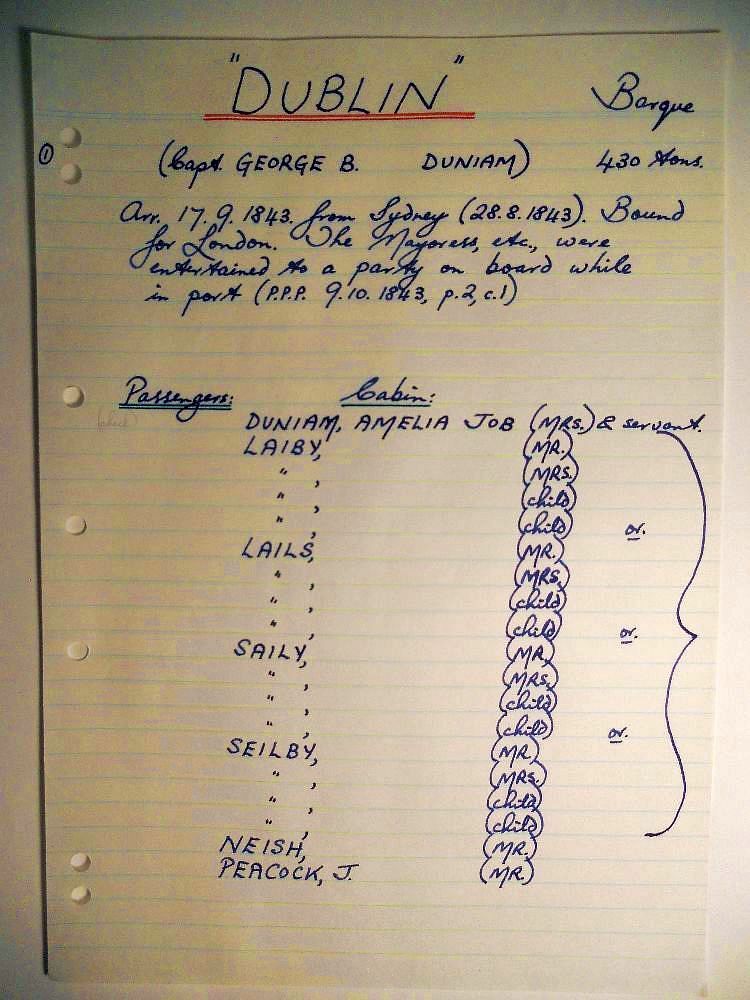 "DUBLIN" Barque
① (Capt. GEORGE B. DUNIAM) 430 tons.
Arr. 17.9.1843. from Sydney (28.8.1843). Bound
for London. The Mayoress, etc., were
entertained to a party on board while
in port (P.P.P. 9.10.1843, p.2, c.1)
Passengers: Cabin:
(check) DUNIAM, AMELIA JOB (MRS.) & servant.
LAIBY, (MR.)
" , (MRS.)
" , (child)
" , (child) or.
LAILS, (MR.)
" , (MRS.)
" , (child)
" , (child) or.
SAILY, (MR.)
" , (MRS.)
" , (child)
" , (child) or.
SEILBY, (MR.)
" , (MRS.)
" , (child)
" , (child)
NEISH, (MR.)
PEACOCK, J. (MR.)